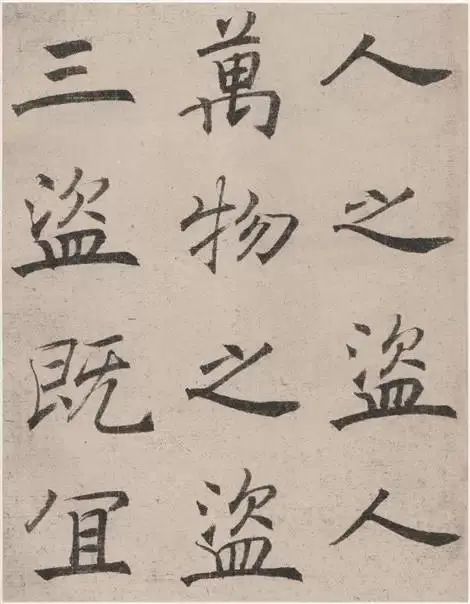 人之盜人
萬物之盜
三盜既宜